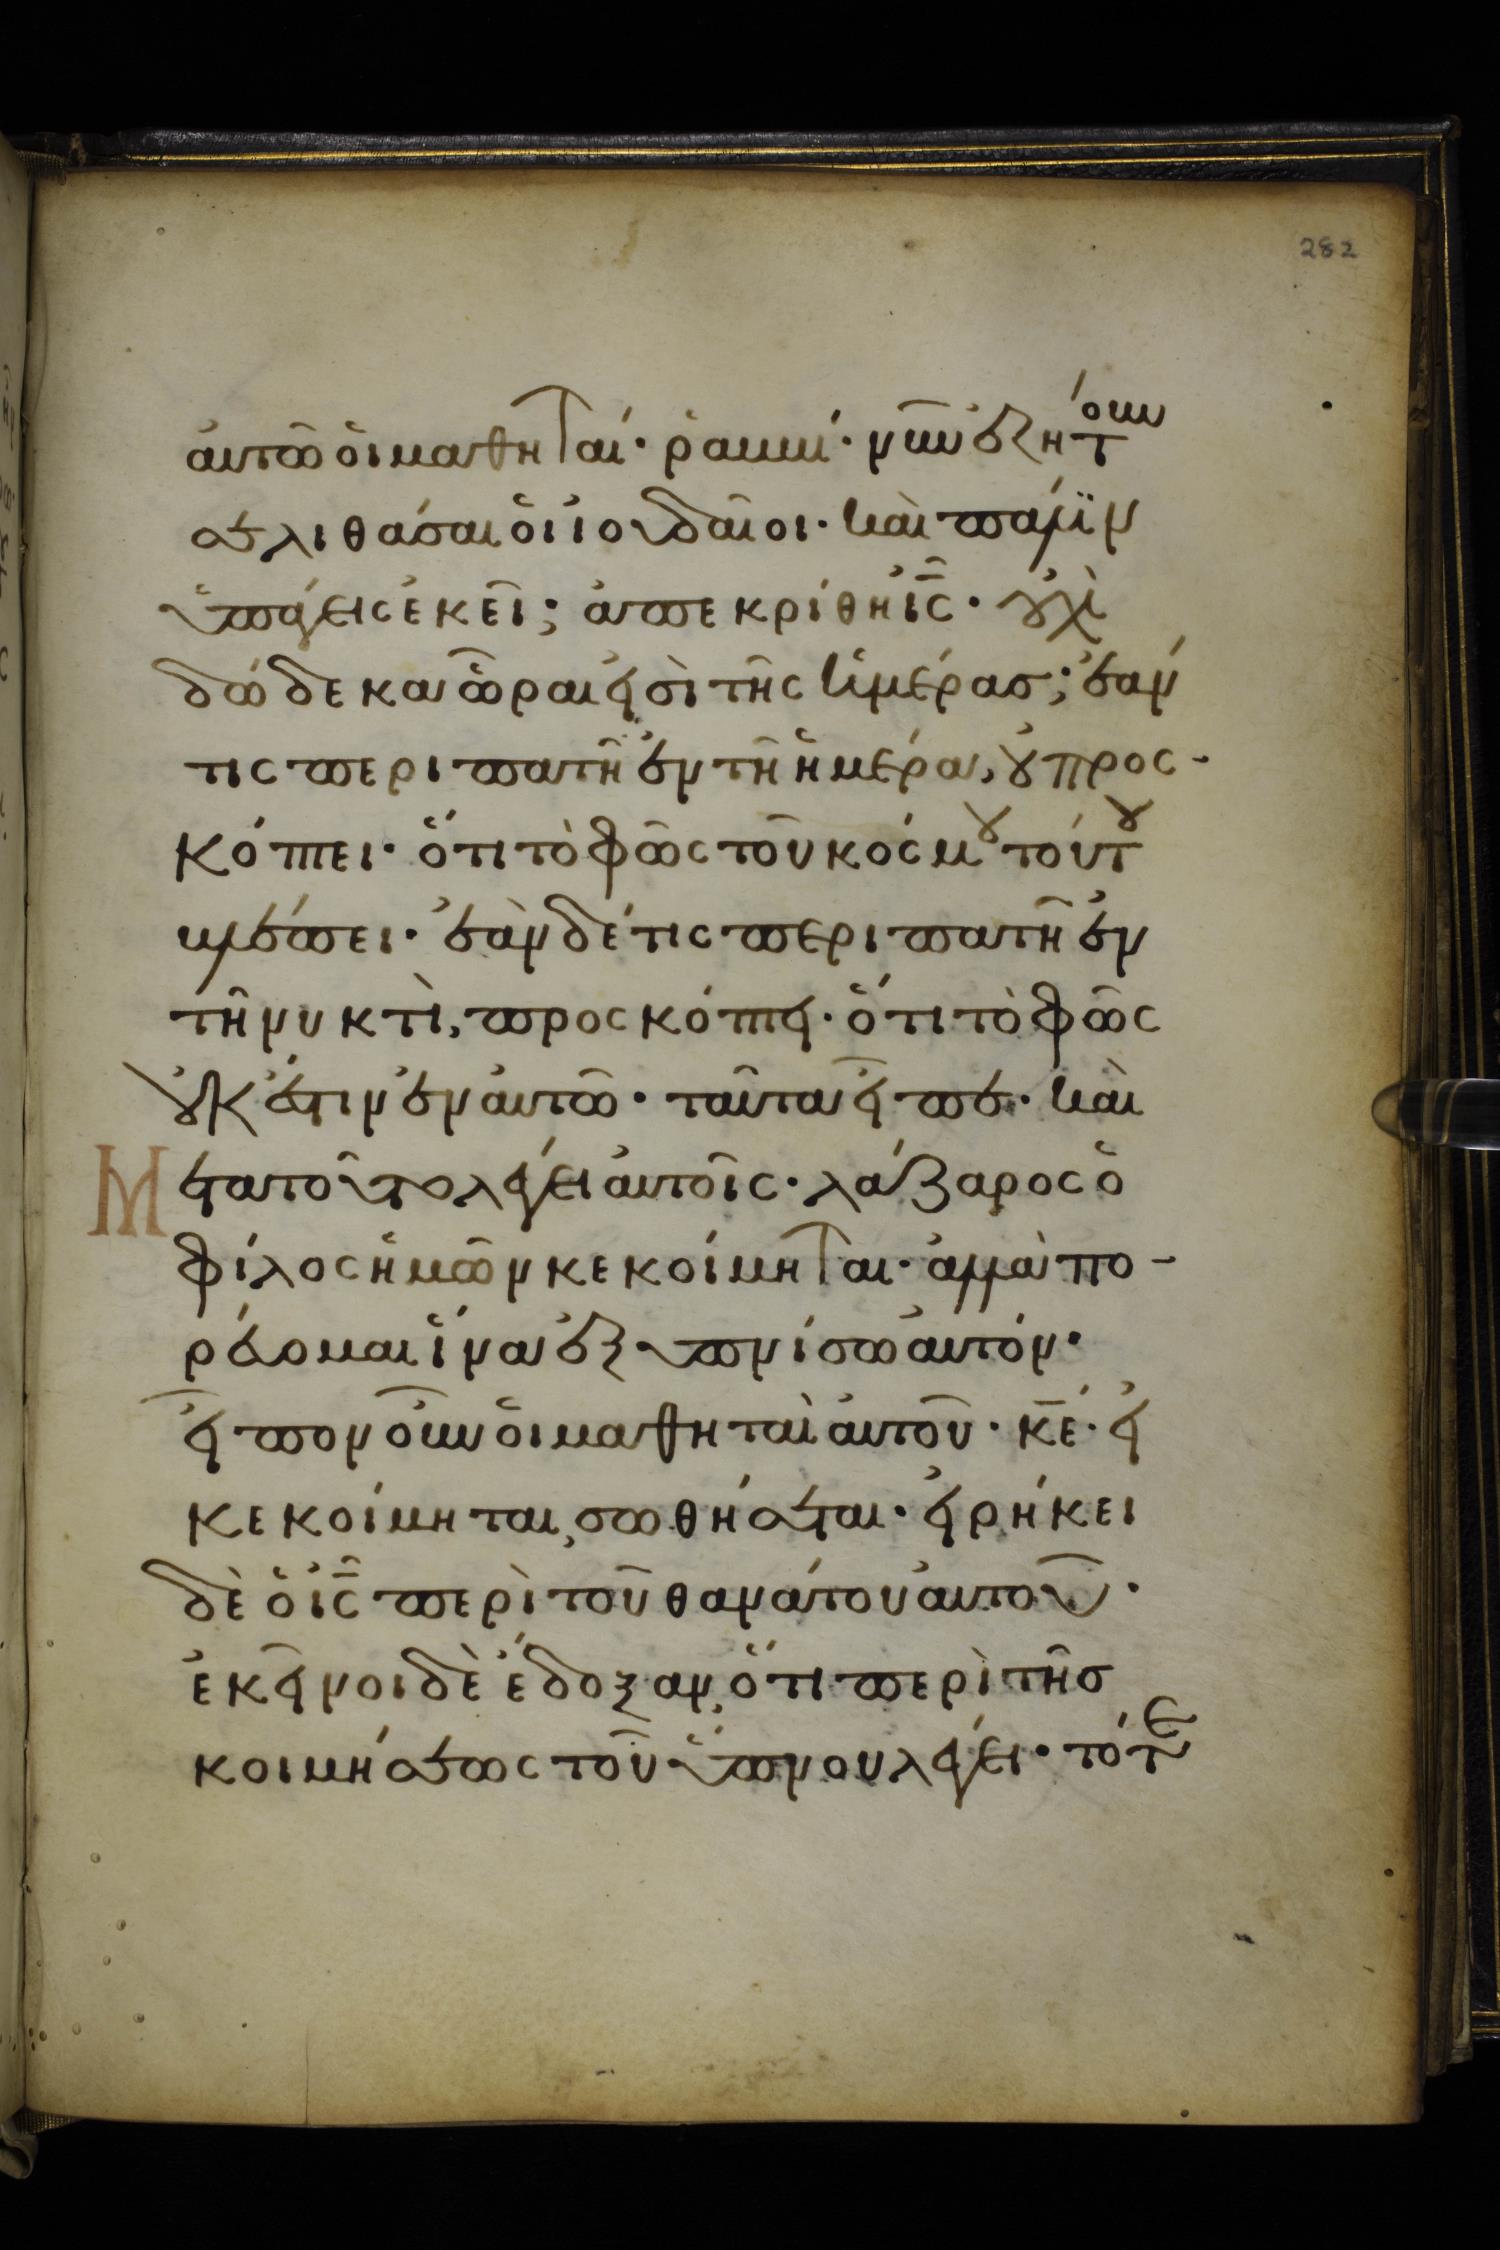 282
αὐτῶ οἱ μαθηταί· ῥαββί· νῦν ἐζήτουν
σε λιθάσαι οἱ ἰουδαῖοι· καὶ πάλϊν
ὑπάγεις ἐκεῖ; ἀπεκρίθη ἰς̅· οὐχὶ
δώδεκα ὧραι εἰσὶ τῆς ἡμέρας; ἐάν
τις περιπατῆ ἐν τῆ ἡμέρα, οὐ προσ-
κόπτει· ὅτι τὸ φῶς τοῦ κόσμου τούτου
βλέπει· ἐὰν δέ τις περιπατῆ ἐν
τῆ νυκτὶ, προσκόπτει· ὅτι τὸ φῶς
οὐκ ἔστιν ἐν αὐτῶ· ταῦτα εἶπε· καὶ
Μετὰ τοῦτο λέγει αὐτοῖς· λάζαρος ὁ
φίλος ἡμῶν κεκοίμηται· ἀλλὰ πο-
ρεύομαι ἵνα ἐξυπνίσω αὐτόν·
εἶπον οὖν οἱ μαθηταὶ αὐτοῦ· κ̅ε̅· εἰ
κεκοίμηται, σωθήσεται· εἰρήκει
δὲ ὁ ἰς̅ περὶ τοῦ θανάτου αὐτοῦ·
ἐκεῖνοι δὲ ἔδοξαν, ὅτι περὶ τῆς
κοιμήσεως τοῦ ὕπνου λέγει· τότε